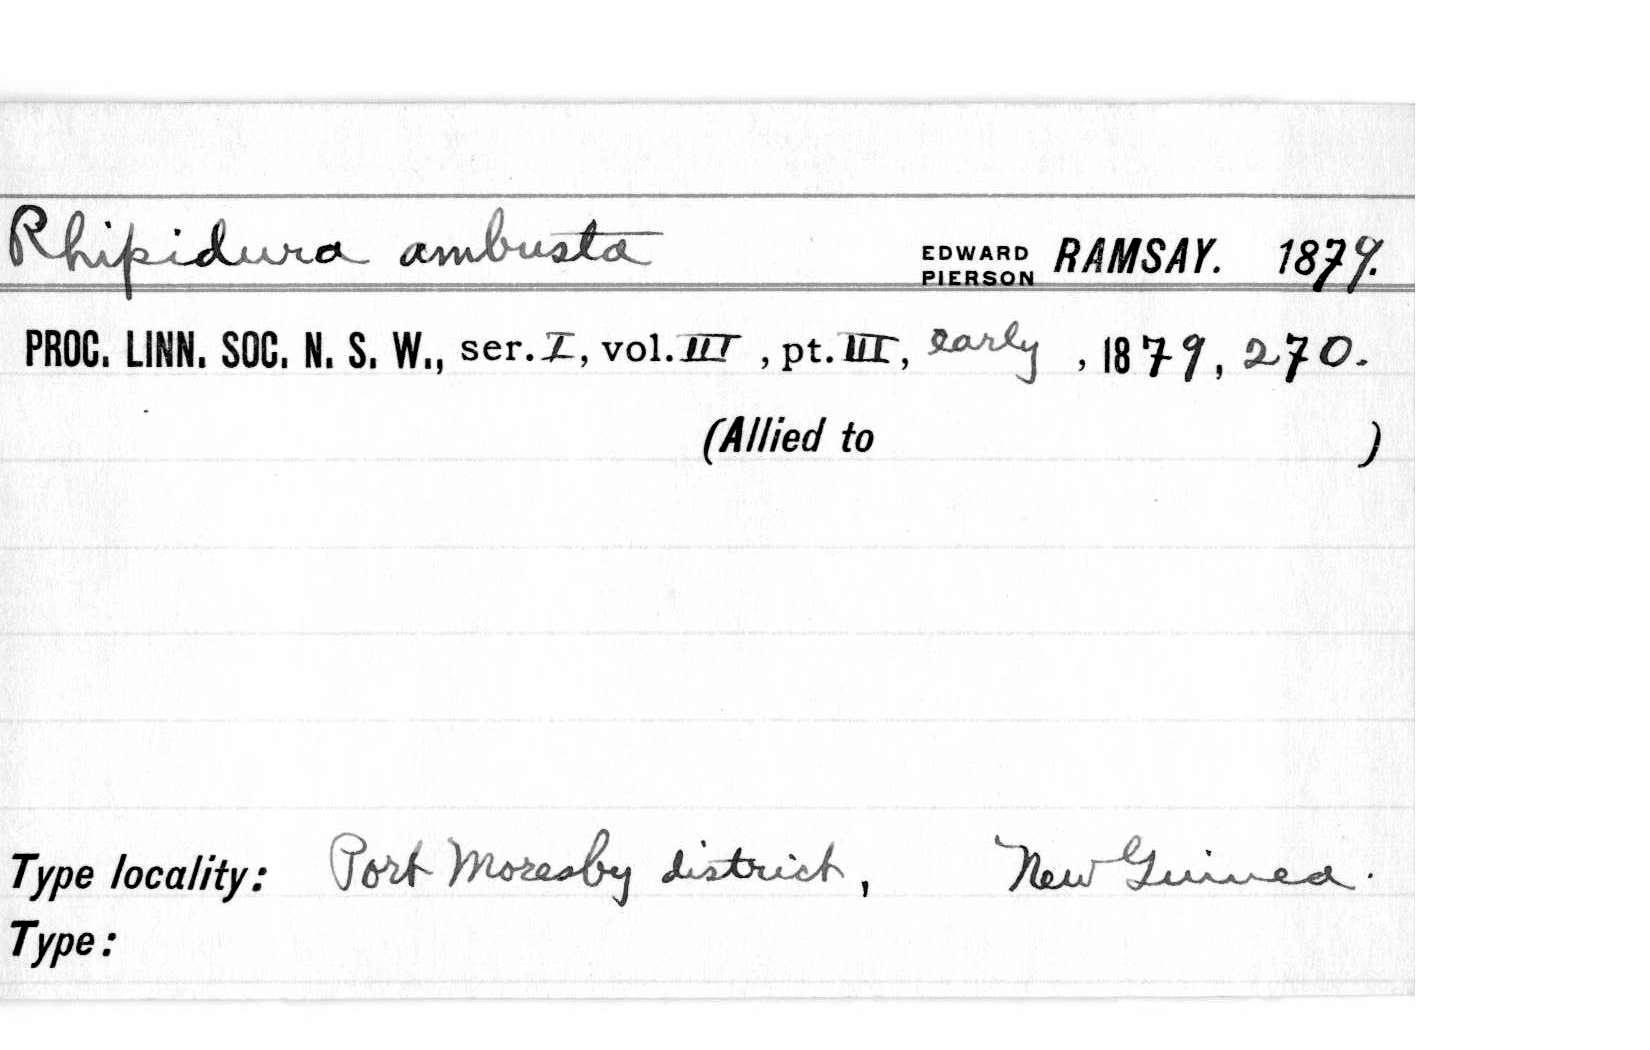 Rhipidura ambusta EDWARD PIERSON RAMSAY. 1879.
PROC. LINN. SOC. N. S. W., ser. I, vol. III, pt. III, early, 1879, 270.
(Allied to )
Type locality: Port Moresby district, New Guinea.
Type: